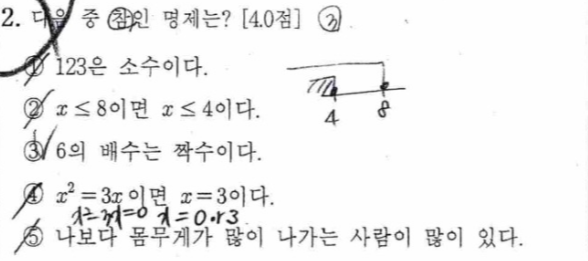 2. 다음 중 참인 명제는? [4.0점] ③
① 123은 소수이다.
② x ≤ 8이면 x ≤ 4이다.
4 8
③ 6의 배수는 짝수이다.
④ x² = 3x 이면 x = 3이다.
x = 0 or 3
⑤ 나보다 몸무게가 많이 나가는 사람이 많이 있다.